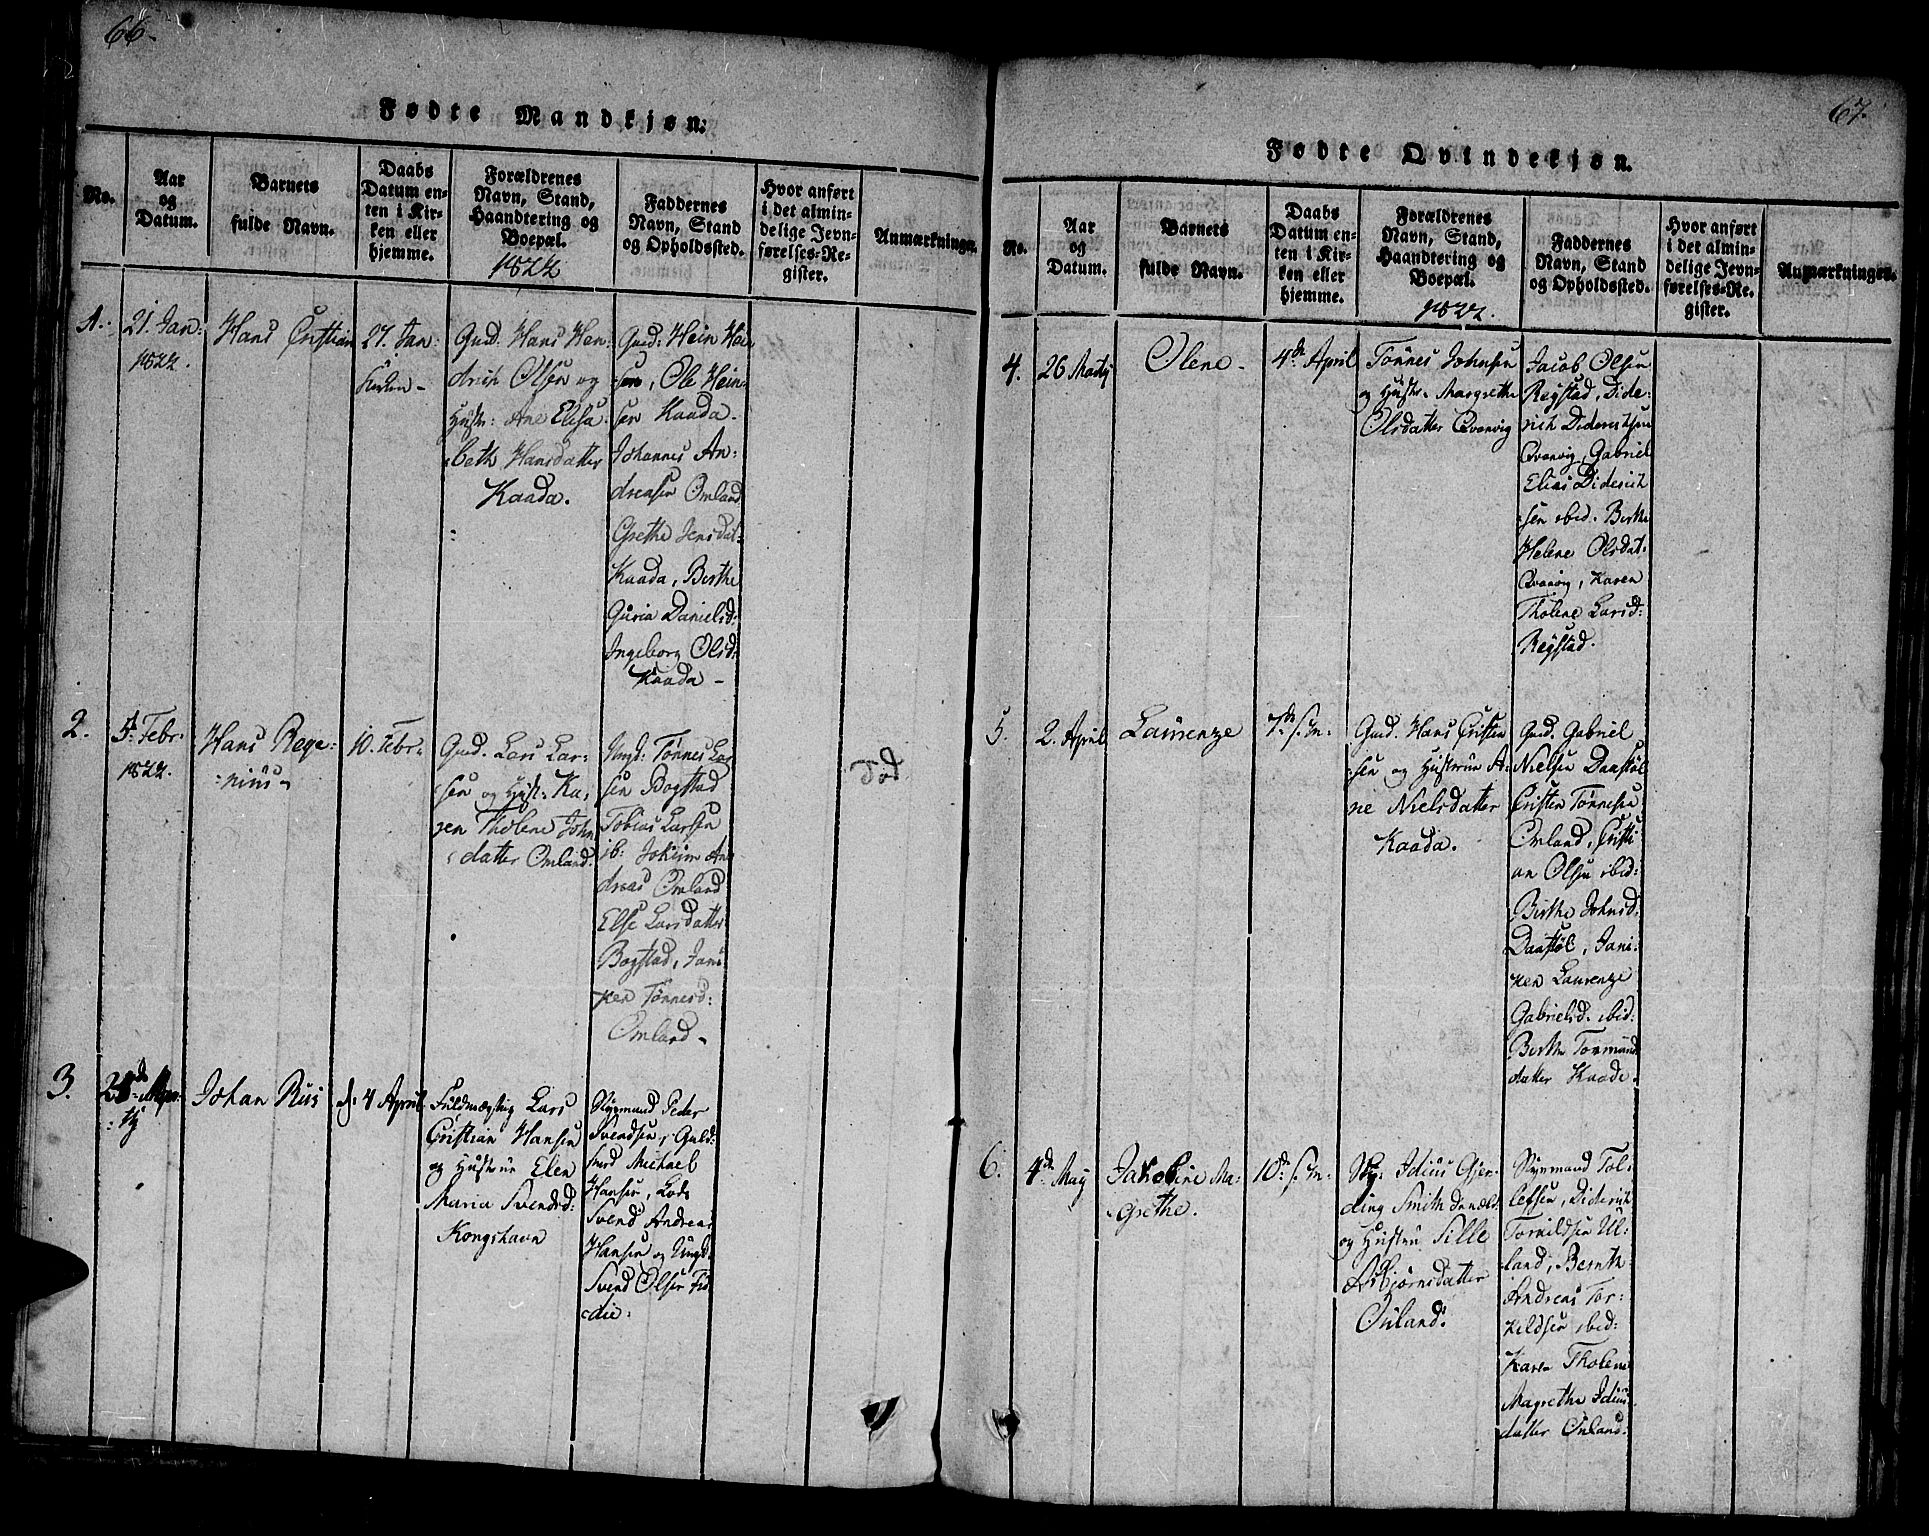 66.
Fødte Mandkjøn.
No.
Aar
og
Datum.
Barnets
fulde Navn.
Daabs
Datum en-
ten i Kir-
ken eller
hjemme.
Forældrenes
Navn, Stand,
Haandtering og
Boepæl.
1822
Faddernes
Navn, Stand
og Opholdssted.
Hvor anført
i det almin-
delige Jevn-
førelses-Re-
gister.
Anmærkninger.
1.
21. Jan:
1822.
Hans Cristian
27. Jan:
Kirken -
Gmd. Hans Hen-
drich Olsen og
Hustr: Ane Elisa-
beth Hansdatter
Kaada.
Gmd: Hein Hei-
sen, Ole Hein-
sen Kaada.
Johannes An-
dreasen Omland
Grethe Jensdat-
Kaada, Berthe
Guria Danielsd:
Ingeborg Olsd:
Kaada -
2.
5. Febr.
1822.
Hans Rege-
nius
10. Febr.
Gmd. Lars Lar-
sen og Hust: Ka-
ren Tholene John
datter Omland.
Ungk: Tønnes Lar
sen Bogstad
Tobias Larsen
ib: Jokum An
dreas Omland
Else Larsdatter
Bogstad, Jani-
ken Tønnesd:
Omland -
Død
3.
Johan Rus
d. 4 April
Fuldmægtig Lars
Cristian Hansen
og Hustrue Elen
Maria Svendsd:
Kongshavn
Styrmand Peder
Svendsen, Guld-
smed Michael
Hansen, Lods
Svend Andreas
Hansen og Ungk
Svend Olsen Fid
die:
67.
Fødte Qvindekjøn.
No.
Aar
og
Datum.
Barnets
fulde Navn.
Daabs
Datum en-
ten i Kir-
ken eller
hjemme.
Forældrenes
Navn, Stand,
Haandtering og
Boepæl.
1822.
Faddernes
Navn, Stand
og Opholdssted.
Hvor anført
i det almin-
delige Jevn-
førelses-Re-
gister.
Anmærkninger.
4.
26 Martj
Olene -
4de April
Tønnes Johnsen
og Hustr. Margrethe
Olsdatter Qvanvig
Jacob Olsen
Reystad, Dide-
rich Diderichsen
Qvanvig, Gabriel
Elias Diderich
sen ibid. Birthe
Helene Olsdat-
Qvanvig, Karen
Tholene Larsd:
Reystad.
5.
2. April
Laurenze
7de s. m.
Gmd. Hans Cristen
sen og Hustrue A-
ne Nielsdatter
Kaada.
Gmd. Gabriel
Nielsen Daastøl
Cristen Tønnesen
Omland, Cristi
an Olsen ibid:
Birthe Johnsd:
Daastøl, Jani-
ken Laurenze
Gabrielsd. ibid:
Birthe Tormund
datter Kaada.
6.
4de May
Jakobine Ma-
grethe.
10de s. m.
Idius Gjer-
ding Smith
og Hustru Sille
Asbjørnsdatter
Omland.
Styrmand Tol-
lefsen, Diderich
Torkildsen Ul-
land, Bernth
Andreas Tor-
kildsen ibid:
Karen Tholene
Magrethe Idius-
datter Omland.